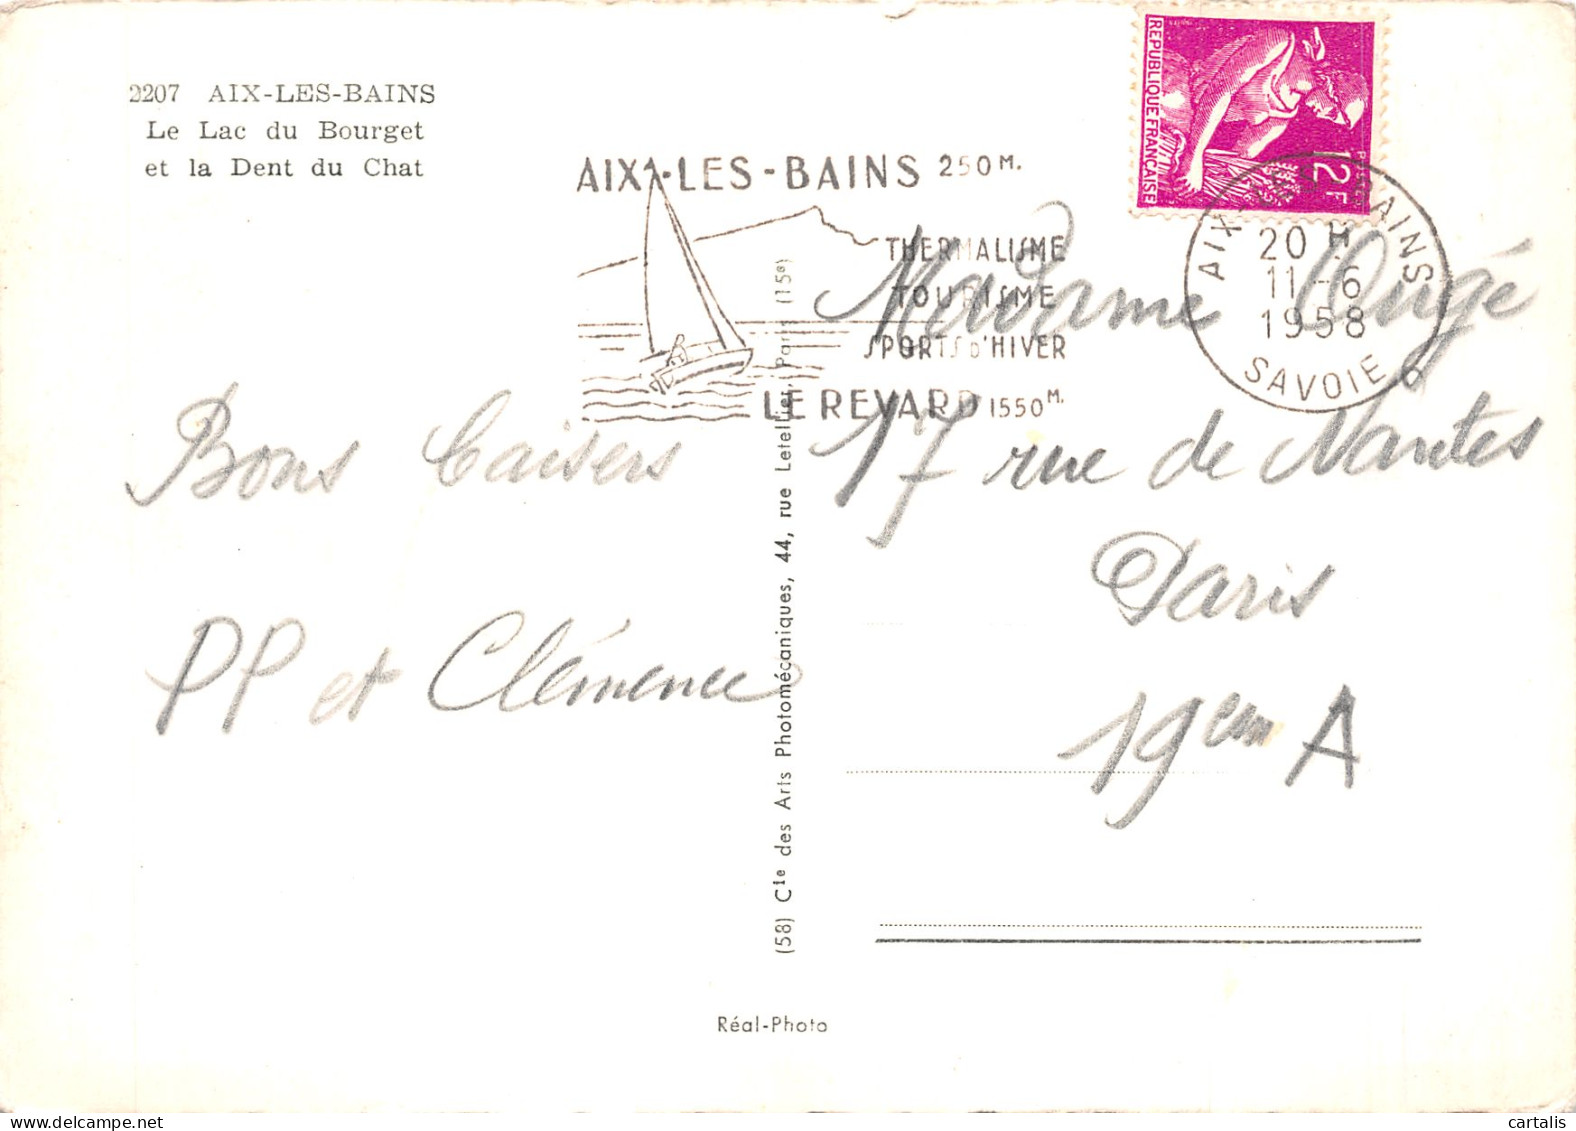 2207 AIX-LES-BAINS
Le Lac du Bourget
et la Dent du Chat
AIX-LES-BAINS 250 M.
THERMALISME
TOURISME
SPORTS D'HIVER
LE REVARD 1550 M.
REPUBLIQUE FRANÇAISE
12F
AIX-LES-BAINS
20 H
11-6
1958
SAVOIE
Bons Baisers
PP et Clémence
(58) Cie des Arts Photomécaniques, 44, rue Letellier, Paris (15e)
Madame Augé
17 rue de Nantes
Paris
19em A
Réal-Photo
cartalis